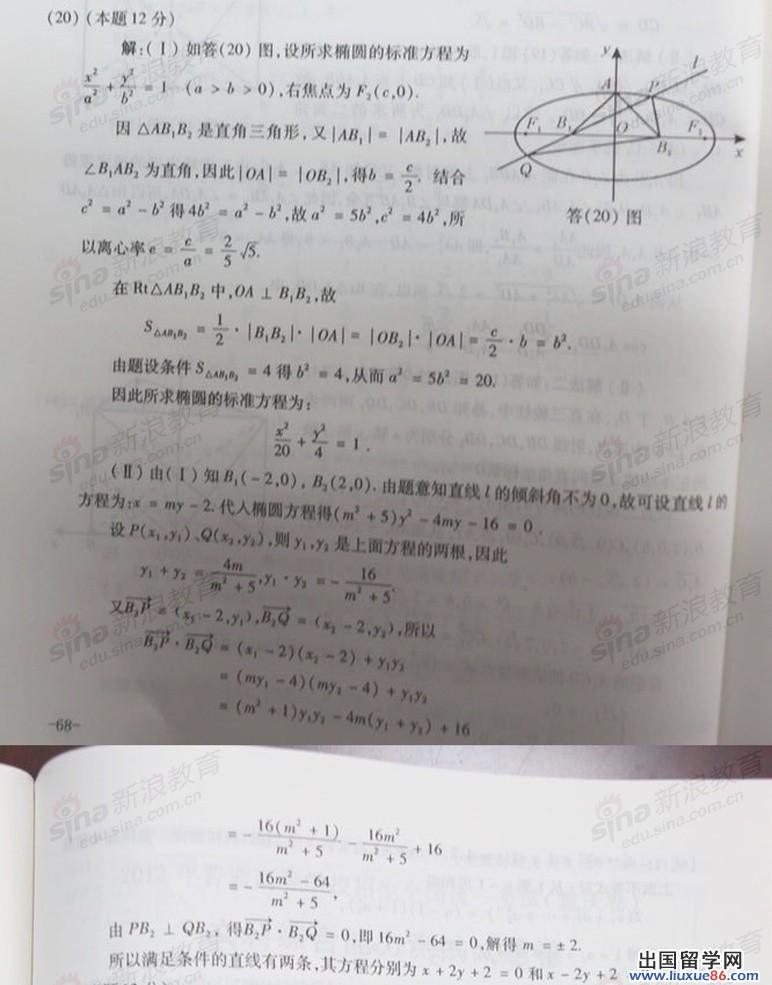 (20)(本题12分)
解:(Ⅰ)如答(20)图,设所求椭圆的标准方程为
x²/a² + y²/b² = 1 (a > b > 0),右焦点为 F₂(c,0).
因△AB₁B₂ 是直角三角形,又|AB₁| = |AB₂|,故
∠B₁AB₂ 为直角,因此|OA| = |OB₂|,得b = c/2. 结合
c² = a² - b² 得 4b² = a² - b²,故 a² = 5b²,c² = 4b²,所
以离心率 e = c/a = 2/5 √5.
在 Rt△AB₁B₂ 中,OA ⊥ B₁B₂,故
S△AB₁B₂ = 1/2 · |B₁B₂| · |OA| = |OB₂| · |OA| = c/2 · b = b².
由题设条件 S△AB₁B₂ = 4 得 b² = 4,从而 a² = 5b² = 20.
因此所求椭圆的标准方程为:
x²/20 + y²/4 = 1.
y
l
A
P
F₁
B₁
O
F₂
B₂
x
Q
答(20) 图
(Ⅱ)由(Ⅰ)知 B₁(-2,0), B₂(2,0). 由题意知直线 l 的倾斜角不为 0,故可设直线 l 的
方程为:x = my - 2. 代入椭圆方程得(m² + 5)y² - 4my - 16 = 0.
设 P(x₁,y₁)、Q(x₂,y₂),则 y₁,y₂ 是上面方程的两根,因此
y₁ + y₂ = 4m/(m² + 5), y₁ · y₂ = - 16/(m² + 5).
又B₂P = (x₁ - 2,y₁),B₂Q = (x₂ - 2,y₂),所以
B₂P · B₂Q = (x₁ - 2)(x₂ - 2) + y₁y₂
= (my₁ - 4)(my₂ - 4) + y₁y₂
= (m² + 1)y₁y₂ - 4m(y₁ + y₂) + 16
-68-
= - 16(m² + 1)/(m² + 5) - 16m²/(m² + 5) + 16
= - (16m² - 64)/(m² + 5),
由 PB₂ ⊥ QB₂, 得B₂P · B₂Q = 0,即 16m² - 64 = 0,解得 m = ± 2.
所以满足条件的直线有两条,其方程分别为 x + 2y + 2 = 0 和 x - 2y + 2
sina新浪教育
edu.sina.com.cn
出国留学网
www.liuxue86.com